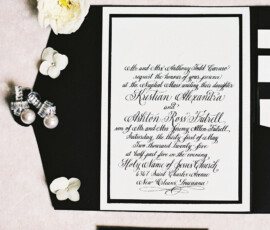 Mr. and Mrs. Anthony Todd
request the honour of your presence
at the Nuptial Mass uniting their daughter
Kristian Alexandra
and
Ashton Ross Futrell
son of Mr. and Mrs. Jimmy Allen Futrell
Saturday, the thirty first of May
two thousand twenty-five
at half past five in the evening
Holy Name of Jesus Church
6367 Saint Charles Avenue
New Orleans, Louisiana